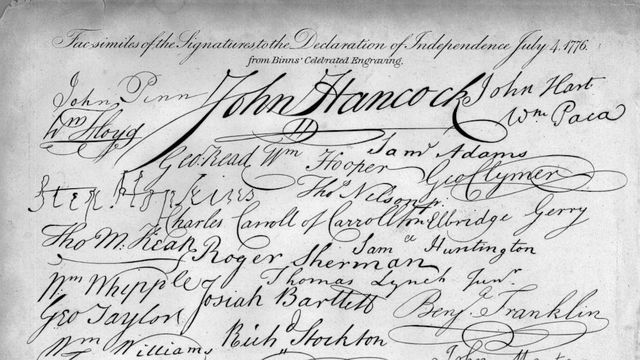 Fac-similes of the Signatures to the Declaration of Independence July 4, 1776.
from Binns' Celebrated Engraving.
John Penn
John Hancock
John Hart
Wm Floyd
Wm Paca
Geo. Read
Wm Hooper
Saml Adams
Geo Clymer
Step. Hopkins
Thos Nelson jr.
Charles Carroll of Carrollton
Elbridge Gerry
Tho M. Kean
Roger Sherman
Saml Huntington
Wm Whipple
Josiah Bartlett
Thomas Lynch Junr.
Benj. Franklin
Geo Taylor
Richd Stockton
Wm Williams
John